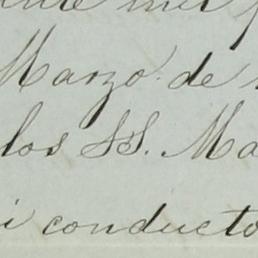 Marzo de
los SS. Ma
i conducto